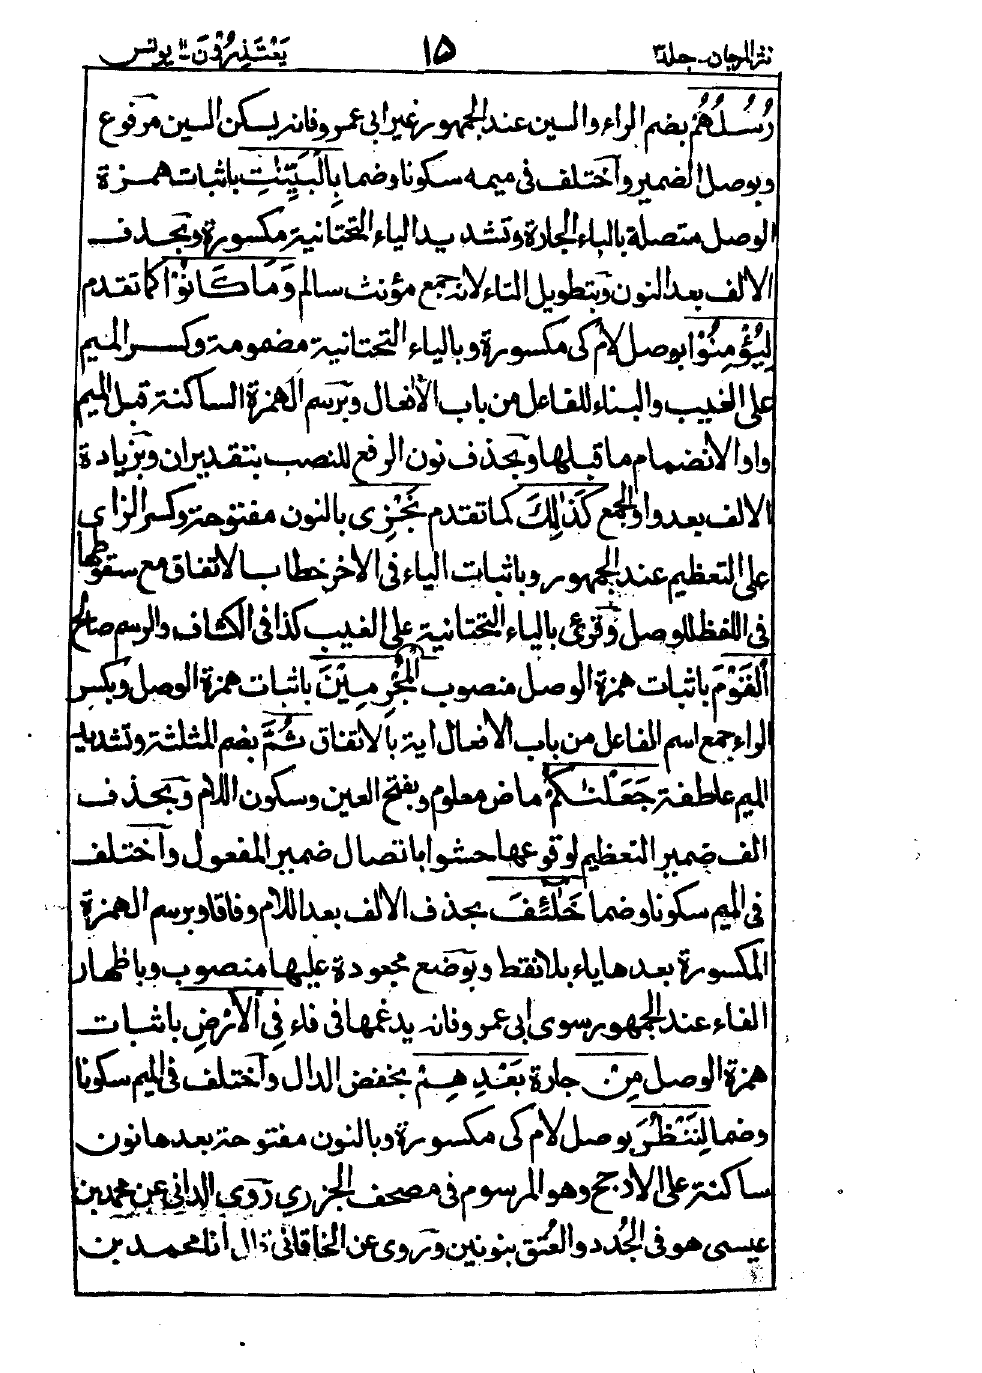 نثر المرجان - جلد ٣ ١٥ يَعْتَذِرُوْنَ ١١ يونس
رُسُلُهُمْ بضم الراء والسين عند الجمهور غير ابى عمرو فانه يسكن السين مرفوع
وبوصل الضمير واختلف فى ميمه سكونا وضما بِالْبَيِّنٰتِ باثبات همزة
الوصل متصلة بالباء الجارة وتشديد الياء التحتانية مكسورة وبحذف
الالف بعد النون وبتطويل التاء لانه جمع مؤنث سالم وَمَا كَانُوْا كما تقدم
لِيُؤْمِنُوْا بوصل لام كى مكسورة وبالياء التحتانية مضمومة وكسر الميم
على الغيب والبناء للفاعل من باب الافعال وبرسم الهمزة الساكنة قبل الميم
واوا لانضمام ما قبلها وبحذف نون الرفع للنصب بتقدير ان وبزيادة
الالف بعد واو الجمع كَذٰلِكَ كما تقدم نَجْزِى بالنون مفتوحة وكسر الزاى
على التعظيم عند الجمهور وباثبات الياء فى الاخر خطا بالاتفاق مع سقوطها
فى اللفظ للوصل وقرئ بالياء التحتانية على الغيب كذا فى الكشاف والرسم صالح
الْقَوْمَ باثبات همزة الوصل منصوب الْمُجْرِمِيْنَ باثبات همزة الوصل وبكسر
الراء جمع اسم الفاعل من باب الافعال اية بالاتفاق ثُمَّ بضم المثلثة وتشديد
الميم عاطفة جَعَلْنٰكُمْ ماض معلوم وبفتح العين وسكون اللام وبحذف
الف ضمير التعظيم لوقوعها حشوا باتصال ضمير المفعول واختلف
فى الميم سكونا وضما خَلٰٓئِفَ بحذف الالف بعد اللام وفاقا وبرسم الهمزة
المكسورة بعدها ياء بلا نقط وبوضع مجعودة عليها منصوب وباظهار
الفاء عند الجمهور سوى ابى عمرو فانه يدغمها فى فاء فِى الْاَرْضِ باثبات
همزة الوصل مِنْ جارة بَعْدِهِمْ بخفض الدال واختلف فى الميم سكونا
وضما لِنَنْظُرَ بوصل لام كى مكسورة وبالنون مفتوحة بعدها نون
ساكنة على الارجح وهو المرسوم فى مصحف الجزرى روى الدانى عن محمد بن
عيسى هو فى الجُدد والعُتق بنونين وروى عن الخاقانى قال انا محمد بن